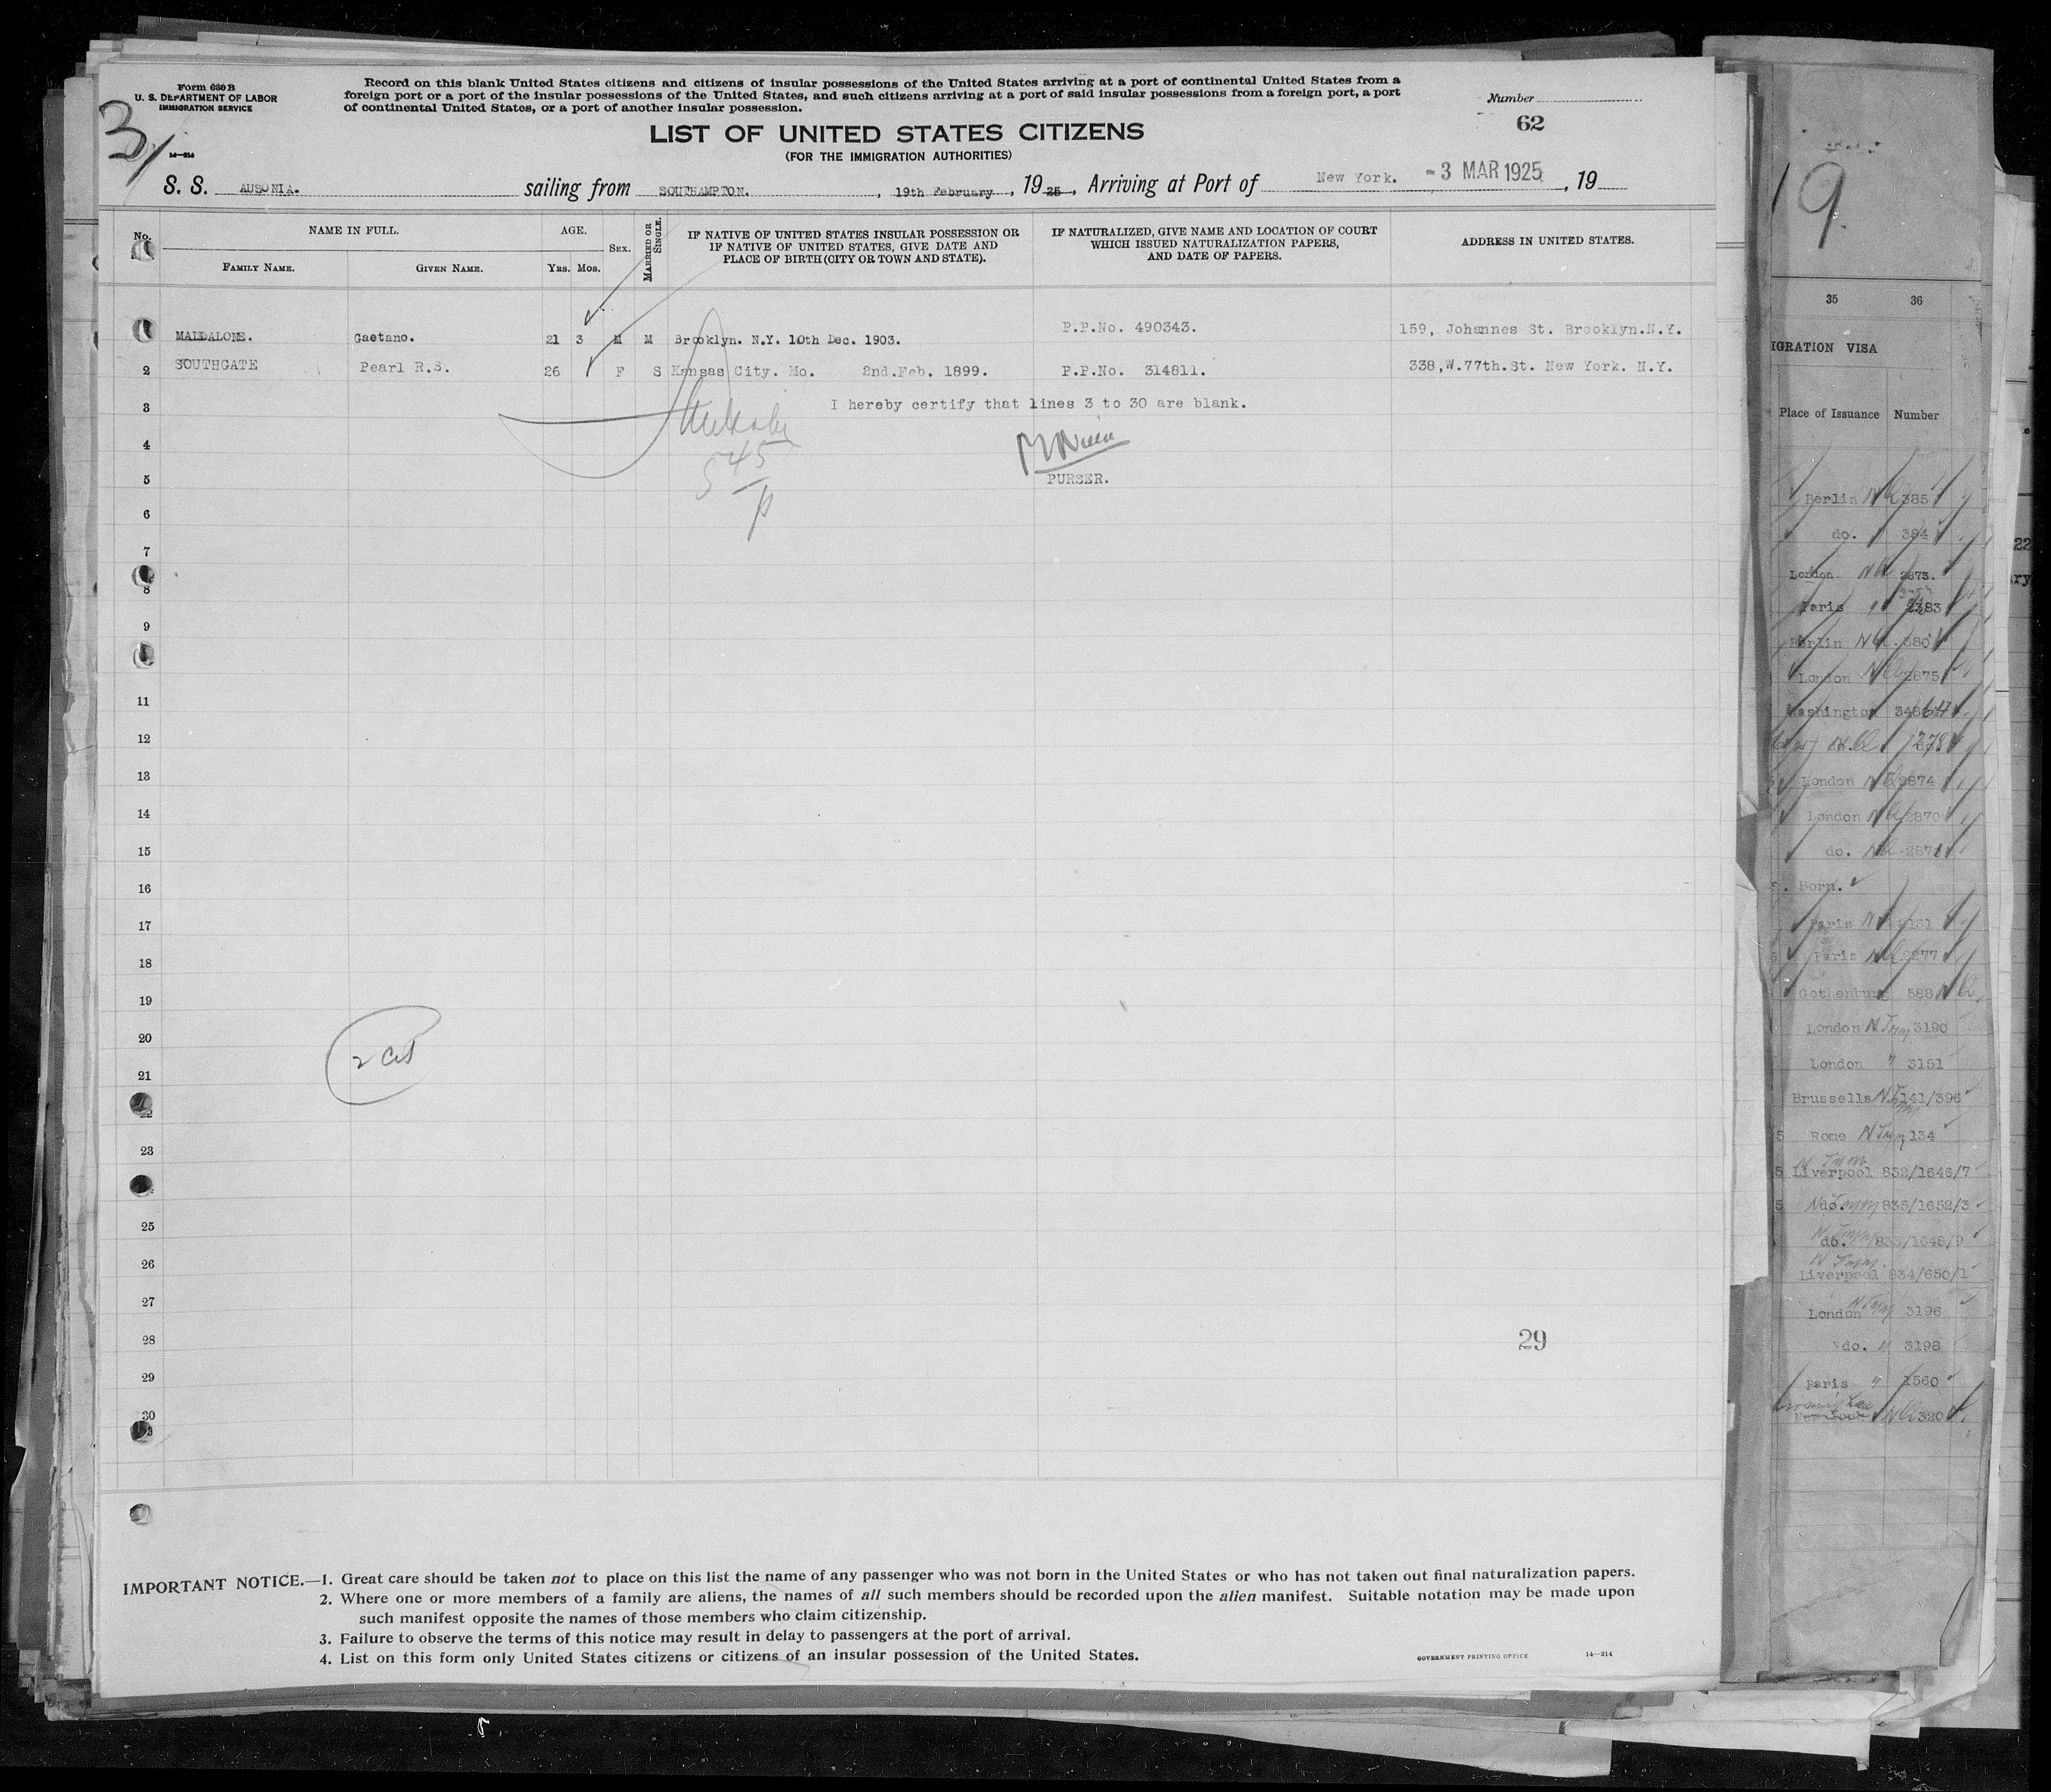 Form 630 B
U. S. DEPARTMENT OF LABOR
IMMIGRATION SERVICE
14—214
3/
Record on this blank United States citizens and citizens of insular possessions of the United States arriving at a port of continental United States from a
foreign port or a port of the insular possessions of the United States, and such citizens arriving at a port of said insular possessions from a foreign port, a port
of continental United States, or a port of another insular possession.
Number
62
LIST OF UNITED STATES CITIZENS
(FOR THE IMMIGRATION AUTHORITIES)
S. S. AUSONIA. sailing from SOUTHAMPTON. , 19th February , 19 25 , Arriving at Port of New York. -3 MAR 1925 , 19
No. NAME IN FULL. AGE. SEX. MARRIED OR SINGLE. IF NATIVE OF UNITED STATES INSULAR POSSESSION OR IF NATIVE OF UNITED STATES, GIVE DATE AND PLACE OF BIRTH (CITY OR TOWN AND STATE). IF NATURALIZED, GIVE NAME AND LOCATION OF COURT WHICH ISSUED NATURALIZATION PAPERS, AND DATE OF PAPERS. ADDRESS IN UNITED STATES.
FAMILY NAME. GIVEN NAME. YRS. MOS.
MADDALONE. Gaetano. 21 3 M M Brooklyn. N.Y. 10th Dec. 1903. P.P.No. 490343. 159, Johannes St. Brooklyn.N.Y.
2 SOUTHGATE Pearl R.S. 26 F S Kansas City. Mo. 2nd.Feb. 1899. P.P.No. 314811. 338,W.77th.St. New York. N.Y.
3 I hereby certify that lines 3 to 30 are blank.
4
5 PURSER.
545
p
6
7
8
9
11
12
13
14
15
16
17
18
19
20
2 cit
21
22
23
25
26
27
28
29
29
30
IMPORTANT NOTICE.—1. Great care should be taken not to place on this list the name of any passenger who was not born in the United States or who has not taken out final naturalization papers.
2. Where one or more members of a family are aliens, the names of all such members should be recorded upon the alien manifest. Suitable notation may be made upon
such manifest opposite the names of those members who claim citizenship.
3. Failure to observe the terms of this notice may result in delay to passengers at the port of arrival.
4. List on this form only United States citizens or citizens of an insular possession of the United States.
GOVERNMENT PRINTING OFFICE 14—214
19.
35 36
IGRATION VISA
Place of Issuance Number
Berlin 385
do. 384
London 2873.
Paris 2383
Berlin 380
London 2875
Washington
London 2874
London 2870
do. 2871
Born.
Paris 2131
Paris 2277
Gothenburg 588
London 3190
London 3151
Brussells 141/396
Rome 134
Liverpool 832/1646/7
do. 835/1652/3
do. 833/1648/9
Liverpool 834/650/1
London 3196
do. 3198
Paris 1560
New York 320